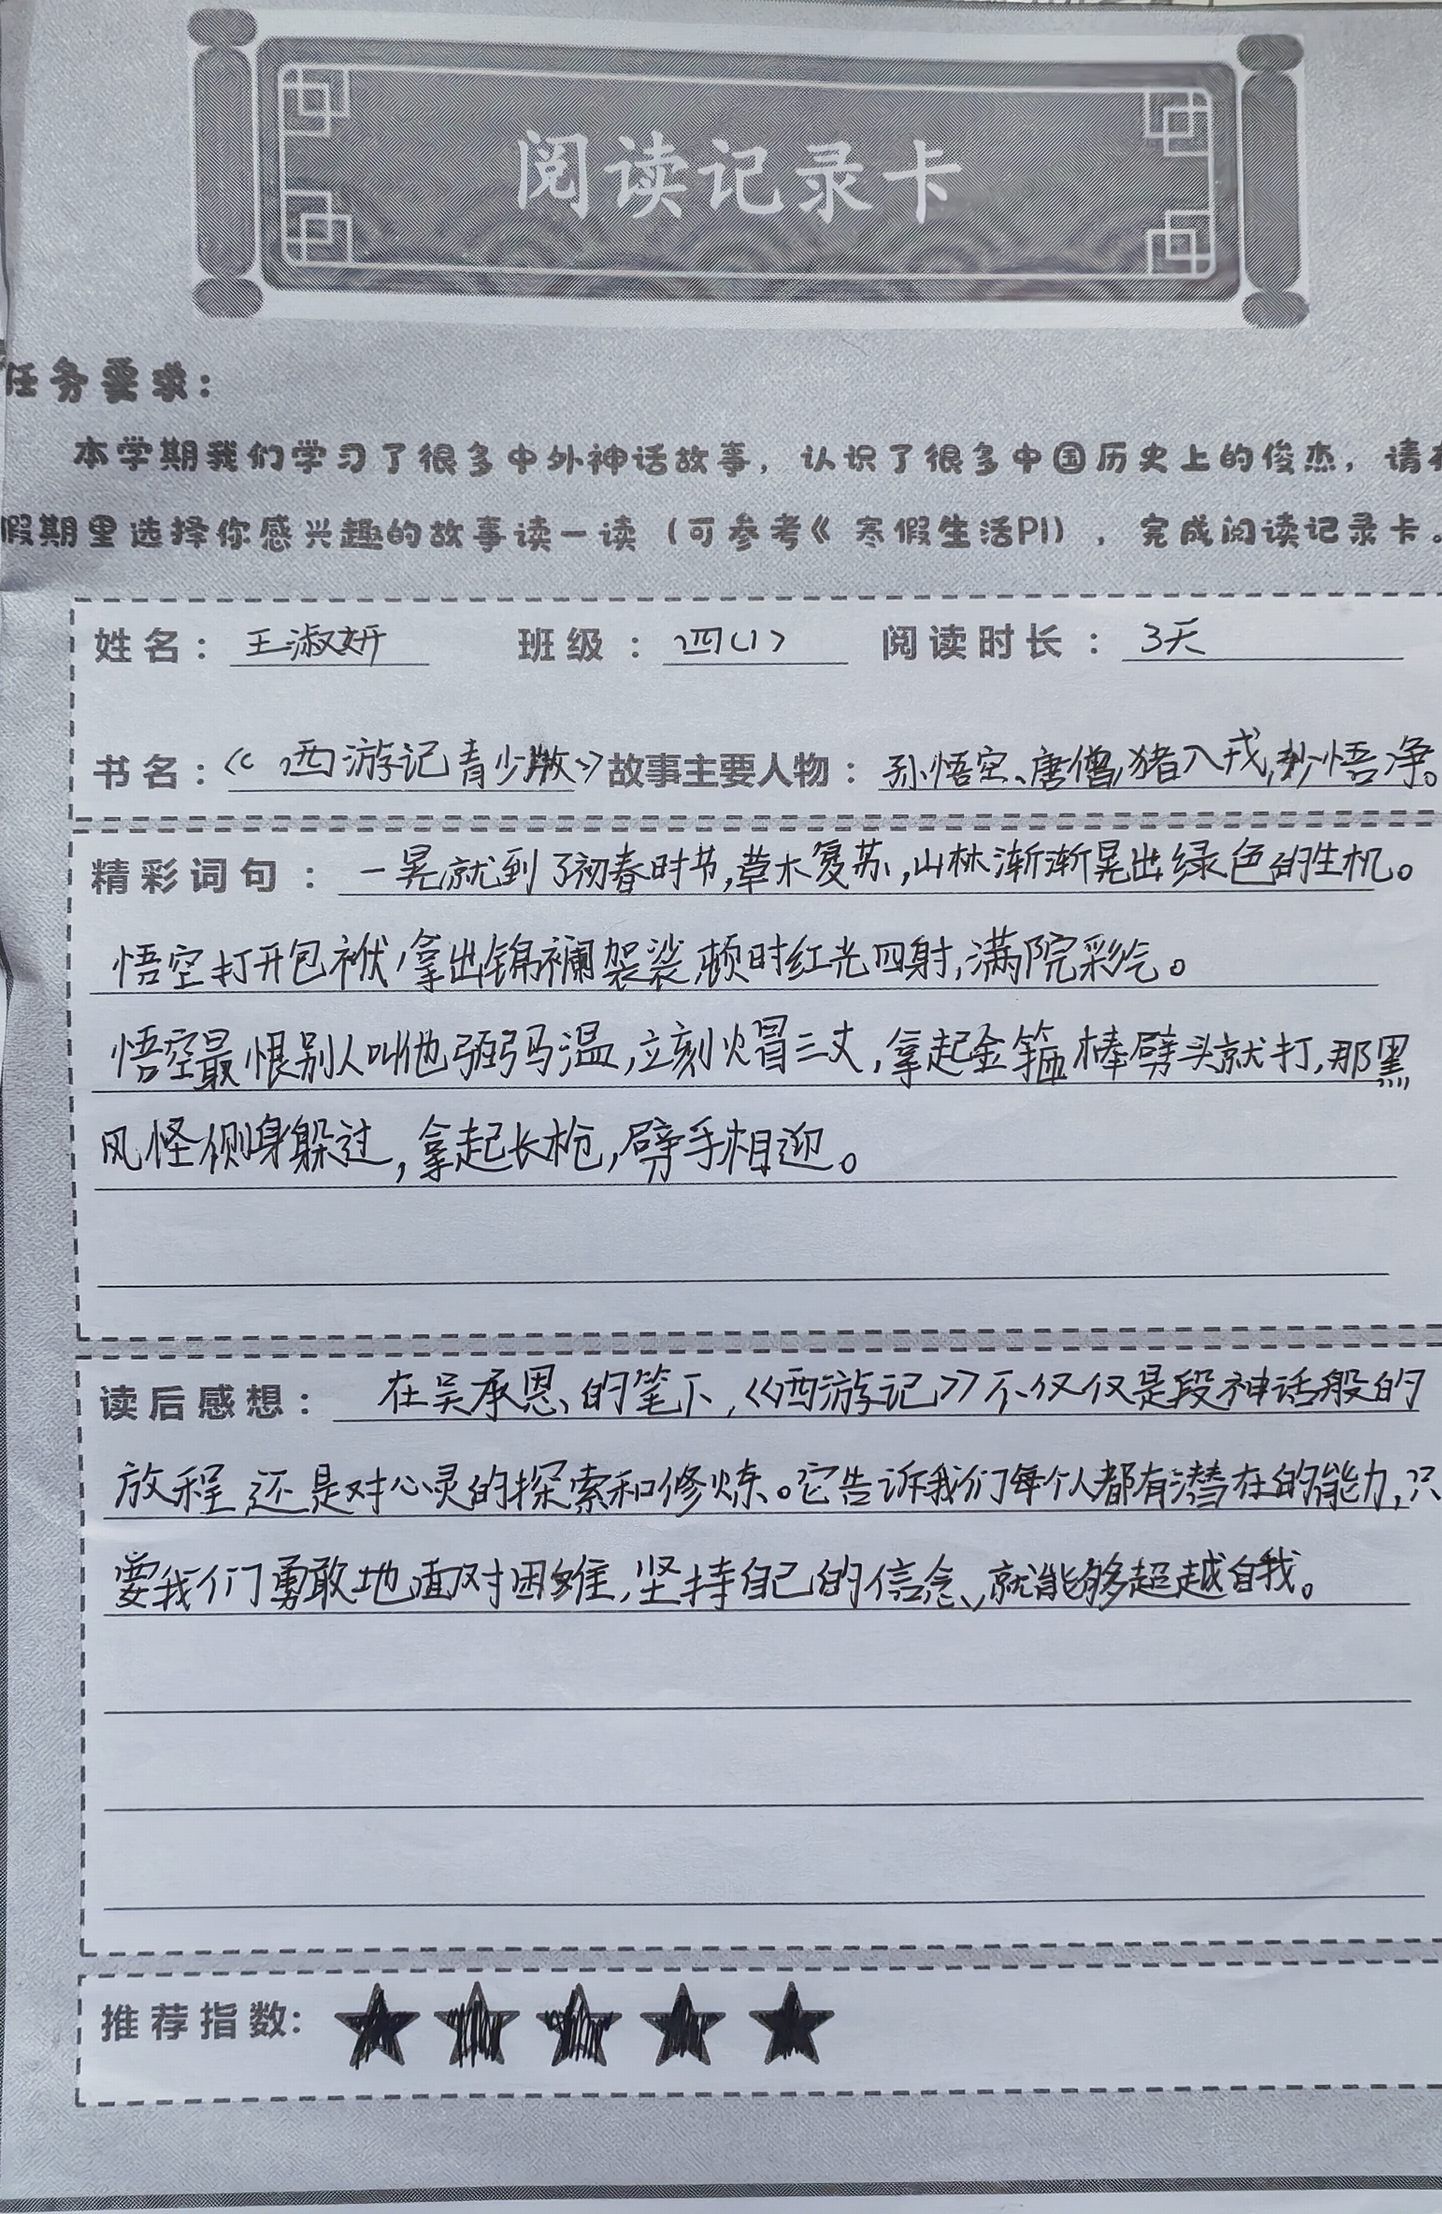 阅读记录卡
任务要求：
本学期我们学习了很多中外神话故事，认识了很多中国历史上的俊杰，请
假期里选择你感兴趣的故事读一读（可参考《寒假生活P1），完成阅读记录卡。
姓名：王淑妍 班级：四(1) 阅读时长：3天
书名：《西游记青少版》故事主要人物：孙悟空、唐僧,猪八戒,沙悟净。
精彩词句：一晃就到了初春时节,草木复苏,山林渐渐晃出绿色的生机。
悟空打开包袱,拿出锦襕袈裟,顿时红光四射,满院彩气。
悟空最恨别人叫他弼马温,立刻火冒三丈,拿起金箍棒劈头就打,那黑
风怪侧身躲过,拿起长枪,劈手相迎。
读后感想：在吴承恩的笔下,《西游记》不仅仅是段神话般的
放程,还是对心灵的探索和修炼。它告诉我们每个人都有潜在的能力,只
要我们勇敢地面对困难,坚持自己的信念,就能够超越自我。
推荐指数：★★★★★